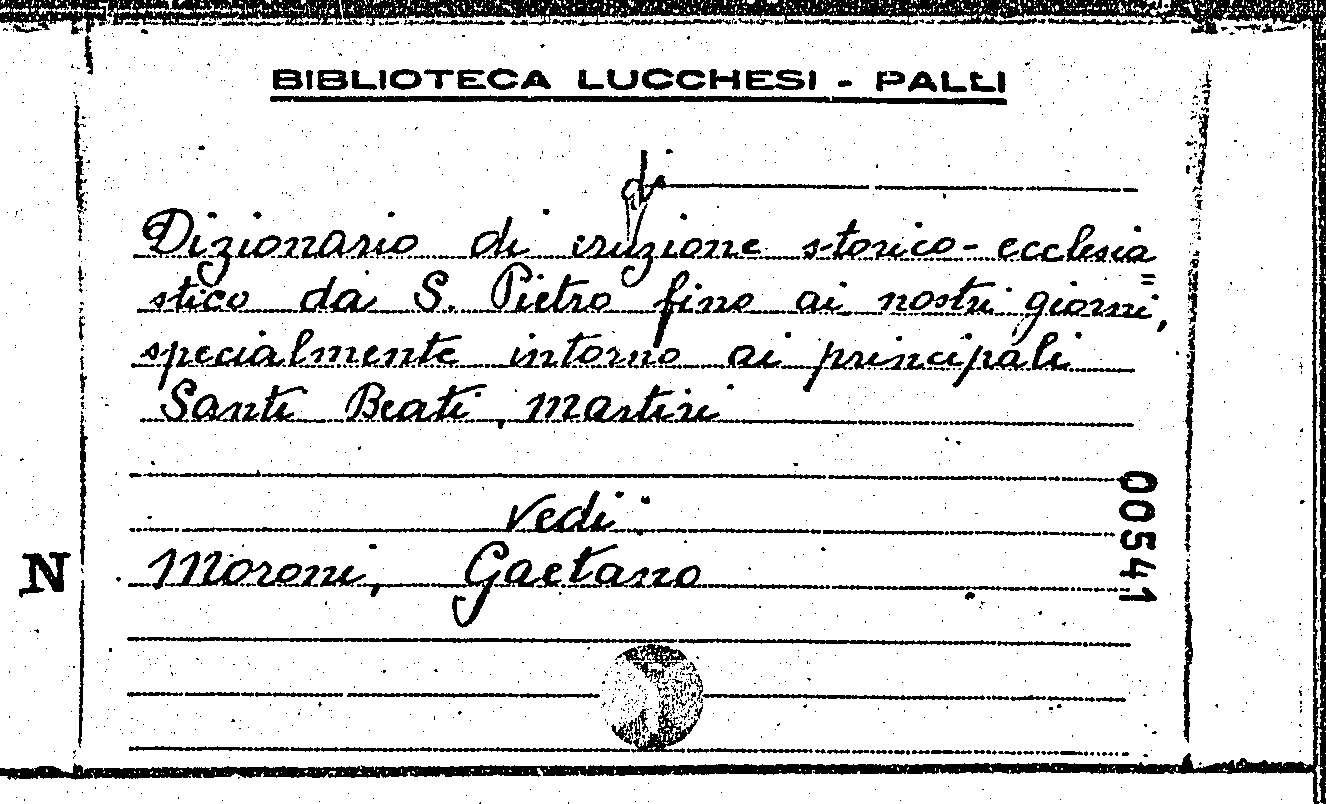 BIBLIOTECA LUCCHESI - PALLI
di
Dizionario di eruzione storico-ecclesia
=
stico da S. Pietro fino ai nostri giorni,
specialmente intorno ai principali
Santi Beati, martiri
vedi
Moroni, Gaetano
N
00541